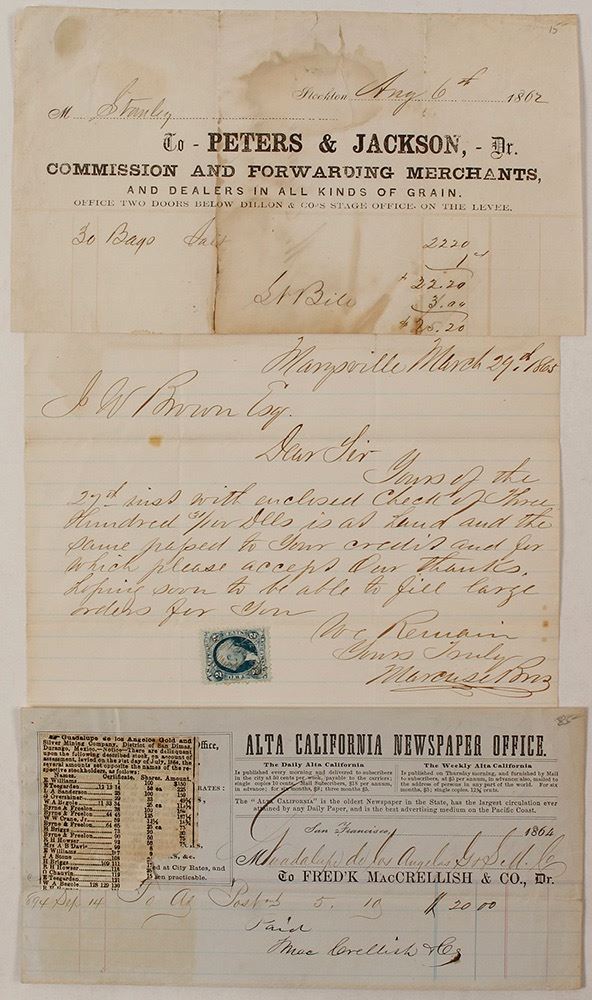 15-
Stockton Aug 6th 1862
M Stanley
To - PETERS & JACKSON, - Dr.
COMMISSION AND FORWARDING MERCHANTS,
AND DEALERS IN ALL KINDS OF GRAIN.
OFFICE TWO DOORS BELOW DILLON & CO'S STAGE OFFICE, ON THE LEVEE.
30 Bags Salt 2220
1
$22.20
St Bill 3.00
$25.20
Marysville March 29th 1865
J W Brown Esq.
Dear Sir
Yours of the
27th inst with enclosed Check of Three
Hundred Dlls is at hand and the
same passed to Your credit and for
which please accept Our thanks.
hoping soon to be able to fill large
orders for You
We Remain
Yours Truly
Marcuse Bros
85-
Office,
ALTA CALIFORNIA NEWSPAPER OFFICE.
The Daily Alta California
Is published every morning and delivered to subscribers
in the city at 50 cents per week, payable to the carriers;
single copies 10 cents. Mail Subscribers $16 per annum,
in advance; for six months, $9; three months, $5.
The Weekly Alta California
Is published on Thursday morning, and furnished by Mail
to subscribers, at $5 per annum, in advance; also, mailed to
the address of persons in any part of the world. For six
months, $3; single copies, 12½ cts.
The "ALTA CALIFORNIA" is the oldest Newspaper in the State, has the largest circulation ever
attained by any Daily Paper, and is the best advertising medium on the Pacific Coast.
San Francisco, 1864
M Guadalupe de los Angeles G & S. M. C
To FRED'K MACCRELLISH & CO., Dr.
Guadalupe de los Angelos Gold and
Silver Mining Company, District of San Dimas,
Durango, Mexico.—Notice—There are delinquent
upon the following described stock, on account of
assessment, levied on the 21st day of July, 1864, the
several amounts set opposite the names of the respective
stockholders, as follows:
Names. Certificate. Shares. Amount.
E Williams
E Teegarden
I A Sanders
G Overshiner
W A Begole
Byrne & Freelon
Byrne & Freelon
W W Crane, Jr
Byrne & Freelon
H Briggs
E R Howser
Mrs A B Davis
E Williams
J A Stone
H Briggs
R H Howser
O Chauvin
E Teegarden
W A Begole 128 129 130
RATES:
&c.
ed at City Rates, and
en practicable.
694 Sep 14 To Ag Post 5. 19 $ 20 00
Paid
Mac Crellish & Co